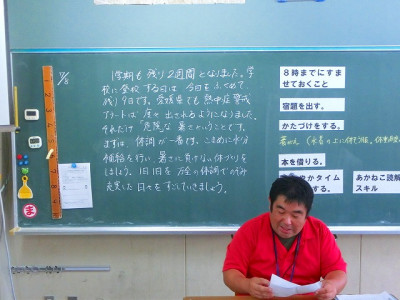 7/8
1学期も残り2週間となりました。学
校に登校する日は、今日をふくめて、
残り9日です。愛媛県でも熱中症警戒
アラートが度々出されるようになりました。
それだけ"危険"な暑さということです。
まずは、体調が一番です。こまめに水分
補給を行い、暑さに負けない体づくりを
しましょう。1日1日を万全の体調でのぞみ
充実した日々をすごしていきましょう。
8時までにすま
せておくこと
宿題を出す。
かたづけをする。
本を借りる。
やかタイム
する。
あかねこ読解
スキル
ま